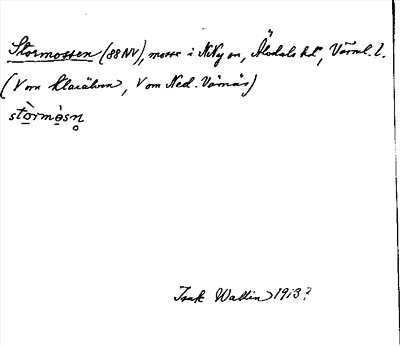 Stormossen (88 NV), mosse i N. Ny sn, Älvdals hd, Värml. l.
(V om Klarälven, V om Ned. Värnäs)
stòrmòsn̥
Isak Wallin 1913?